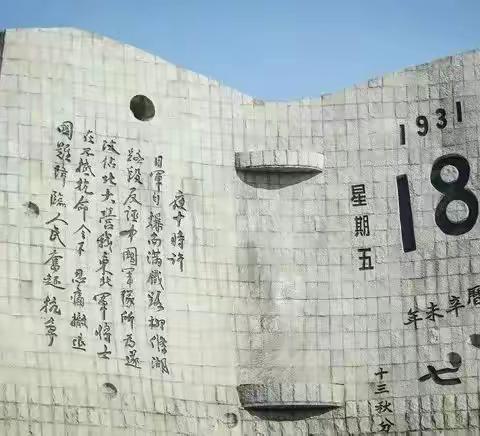 夜十時許
日軍自爆南滿鐵路柳條湖
路段反誣中國軍隊所為遂
攻佔北大營我東北軍將士
在不抵抗命令下忍痛撤退
國難降臨人民奮起抗爭
1931
18
星期五
曆辛未年
七
十三秋分